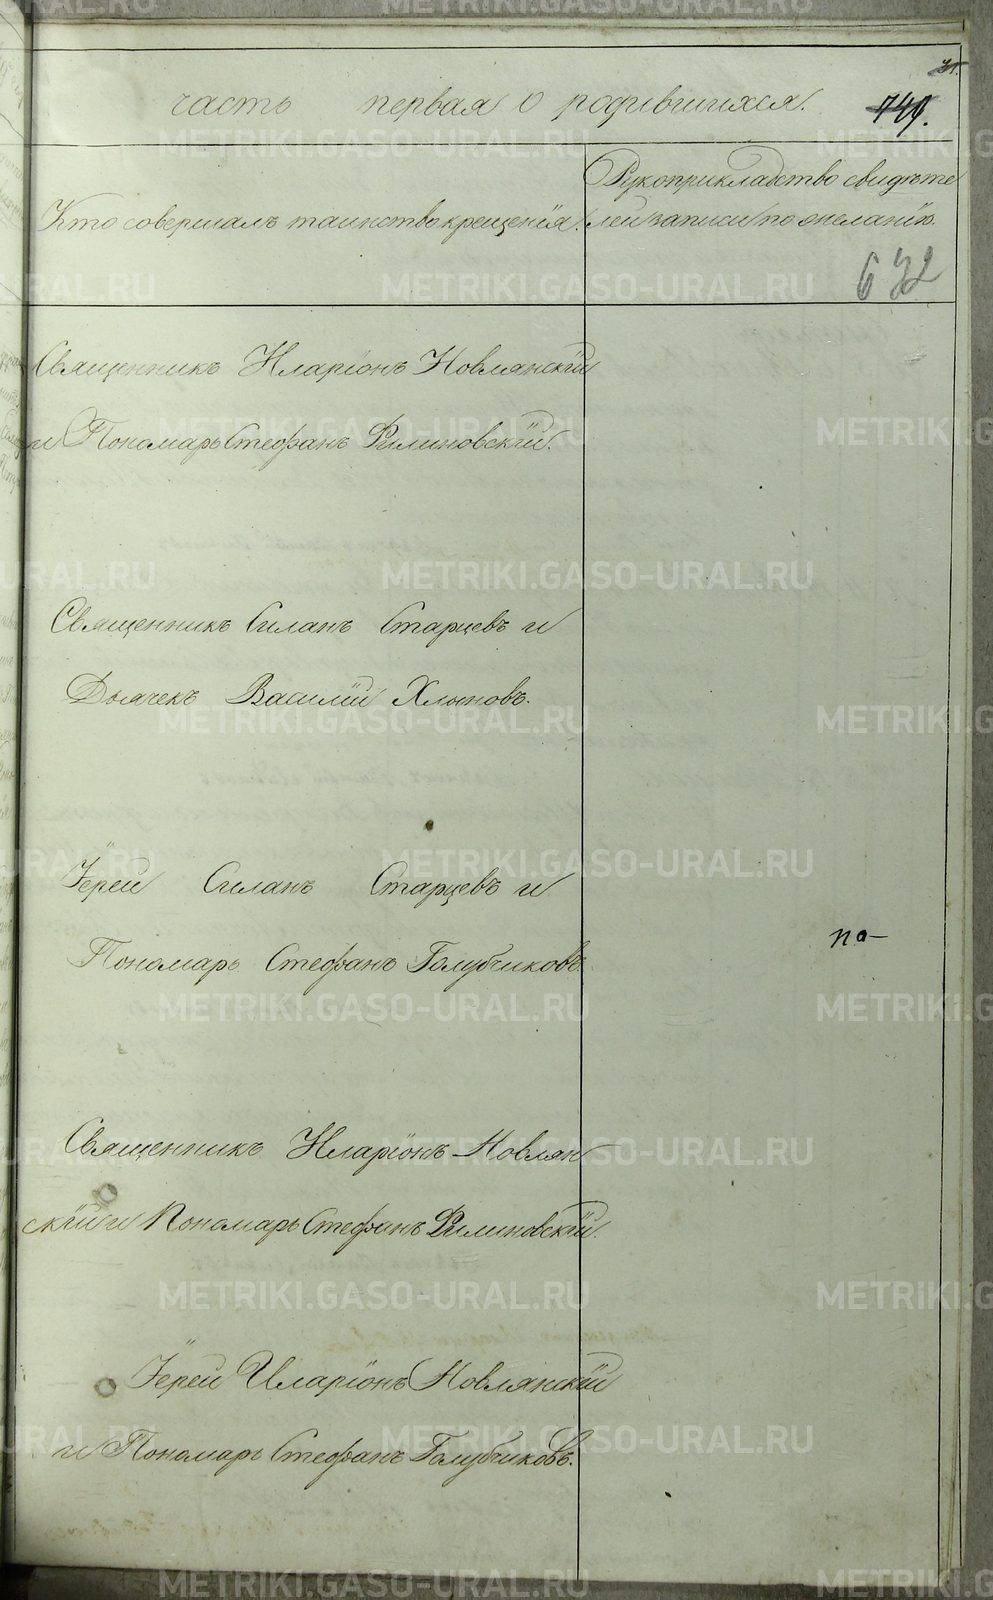 31.
часть первая о родившихся.
749.
Кто совершалъ таинство крещенія.
Рукоприкладство свидѣте
лей записи по желанію.
632
Священникъ Иларіонъ Новлянскій
и Пономарь Стефанъ Филиновскій.
Священникъ Силанъ Старцевъ и
Дьячекъ Василій Хлыновъ.
Іерей Силанъ Старцевъ и
Пономарь Стефанъ Голубчиковъ
по-
Священникъ Иларіонъ Новлян
скій и Пономарь Стефанъ Филиновскій.
Іерей Иларіонъ Новлянскій
и Пономарь Стефанъ Голубчиковъ.
METRIKI.GASO-URAL.RU